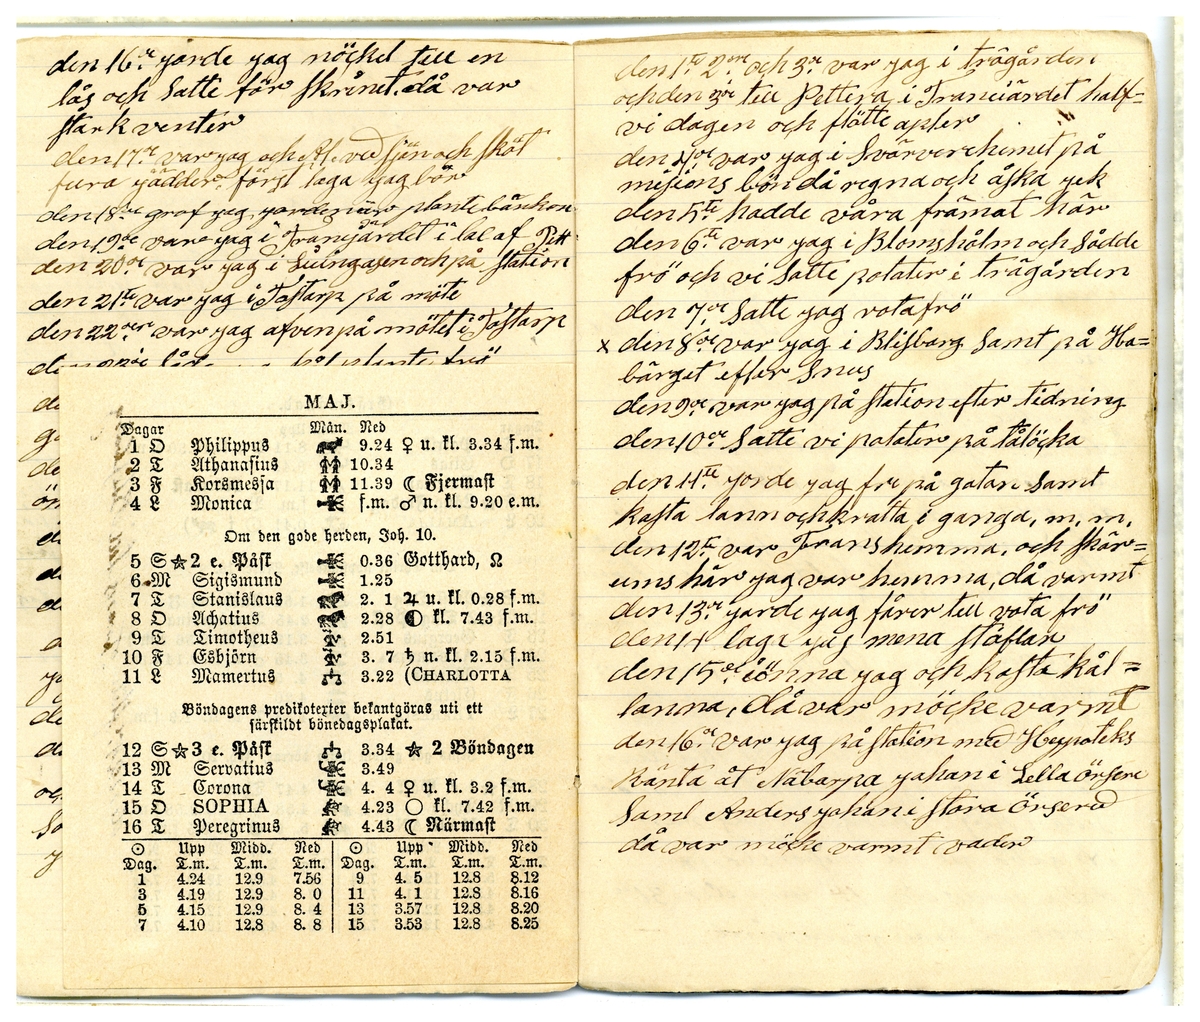 den 16de gorde yag nöckel till en
lås och Satte för skrinet. då var
stark venter
den 17de var yag och Af. ved sjön och sköt
fura gädder. först laga yag bör
den 18de graf yag, gorde plantebänken
den 19de var yag i Tranejärdet i lal af Pett
den 20de var yag i och på station
den 21te var yag i Tostarp på möte
den 22dre var yag afven på mötet i Tostarp
MAJ.
Dagar Mån. Ned
1 O Philippus 9.24 ♀ u. kl. 3.34 f.m.
2 T Athanasius 10.34
3 F Korsmessa 11.39 ☾ Fjermast
4 L Monica f.m. ♂ n. kl. 9.20 e.m.
Om den gode herden, Joh. 10.
5 S ☆ 2 e. Påsk 0.36 Gotthard, Ω
6 M Sigismund 1.25
7 T Stanislaus 2. 1 ♃ u. kl. 0.28 f.m.
8 O Achatius 2.28 ◐ kl. 7.43 f.m.
9 T Timotheus 2.51
10 F Esbjörn 3. 7 ♄ n. kl. 2.15 f.m.
11 L Mamertus 3.22 (CHARLOTTA
Böndagens predikotexter bekantgöras uti ett
särskildt bönedagsplakat.
12 S ☆ 3 e. Påsk 3.34 ☆ 2 Böndagen
13 M Servatius 3.49
14 T Corona 4. 4 ♀ u. kl. 3.2 f.m.
15 O SOPHIA 4.23 ○ kl. 7.42 f.m.
16 T Peregrinus 4.43 ☾ Närmast
☉ Upp Midd. Ned ☉ Upp Midd. Ned
Dag. T.m. T.m. T.m. Dag. T.m. T.m. T.m.
1 4.24 12.9 7.56 9 4. 5 12.8 8.12
3 4.19 12.9 8. 0 11 4. 1 12.8 8.16
5 4.15 12.9 8. 4 13 3.57 12.8 8.20
7 4.10 12.8 8. 8 15 3.53 12.8 8.25
den 1te 2dre och 3de var yag i trägården
och den 3de till Pettera i Tranejärdet half=
vi dagen och flötte apler
den 4de var yag i Svärverehemet på
misions bön då regna och åska gek
den 5te hadde våra främat här
den 6te var yag i Blomsholm och Sådde
frö och vi Satte potater i trägården
den 7de Satte yag rotafrö
x den 8de var yag i Blisbarg Samt på Ha=
bärget efter Snus
den 9de var yag på station efter tidning
den 10de Satte vi potater på tålöcka
den 11te gorde yag fre på gatan Samt
kasta lann och kratta i ganga, m. m.
den 12te var Frans hemma, och Skär=
ums här yag var hemma, då varmt
den 13de gorde yag fårer till rota frö
den 14 laga yag mena stöflar
den 15de jönna yag och kasta kål=
lanna, då var möcke varmt
den 16de var yag på station med Heypoteks
Ränta åt Näbarpa yahan i Lella Örsered
Samt Anders yahan i stora Örsered
då var möcke varmt vader